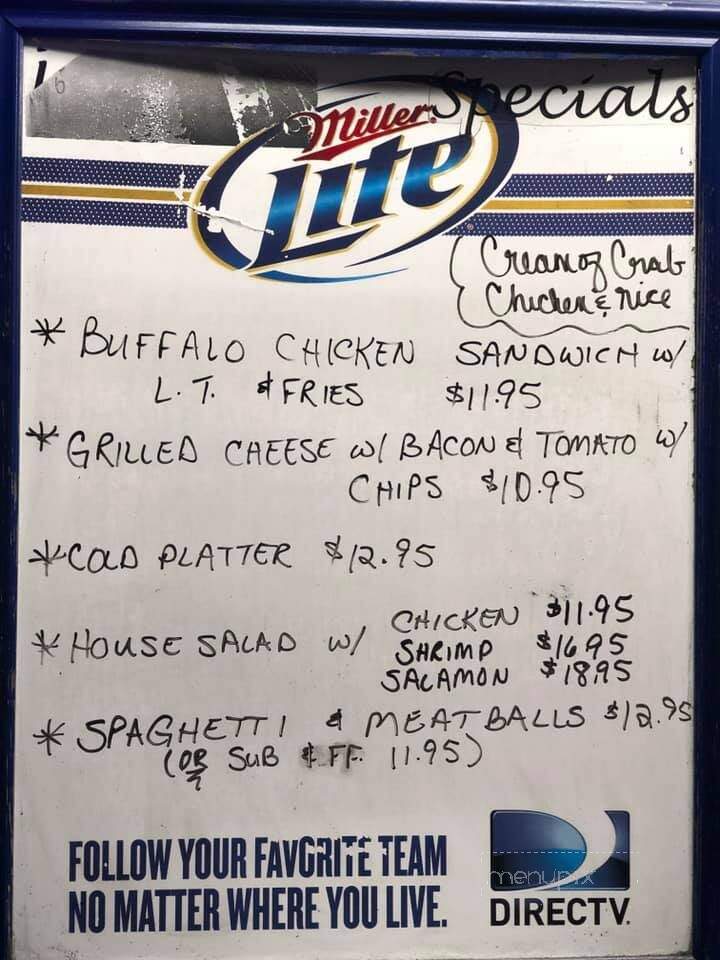 Specials
Miller
Lite
Cream of Crab
Chicken & rice
* BUFFALO CHICKEN SANDWICH W/
L.T. & FRIES $11.95
* GRILLED CHEESE W/ BACON & TOMATO W/
CHIPS $10.95
* COLD PLATTER $12.95
* HOUSE SALAD W/ CHICKEN $11.95
SHRIMP $16.95
SALAMON $18.95
* SPAGHETTI & MEATBALLS $12.95
(OR SUB & FF. 11.95)
FOLLOW YOUR FAVORITE TEAM
NO MATTER WHERE YOU LIVE.
menupix
DIRECTV.